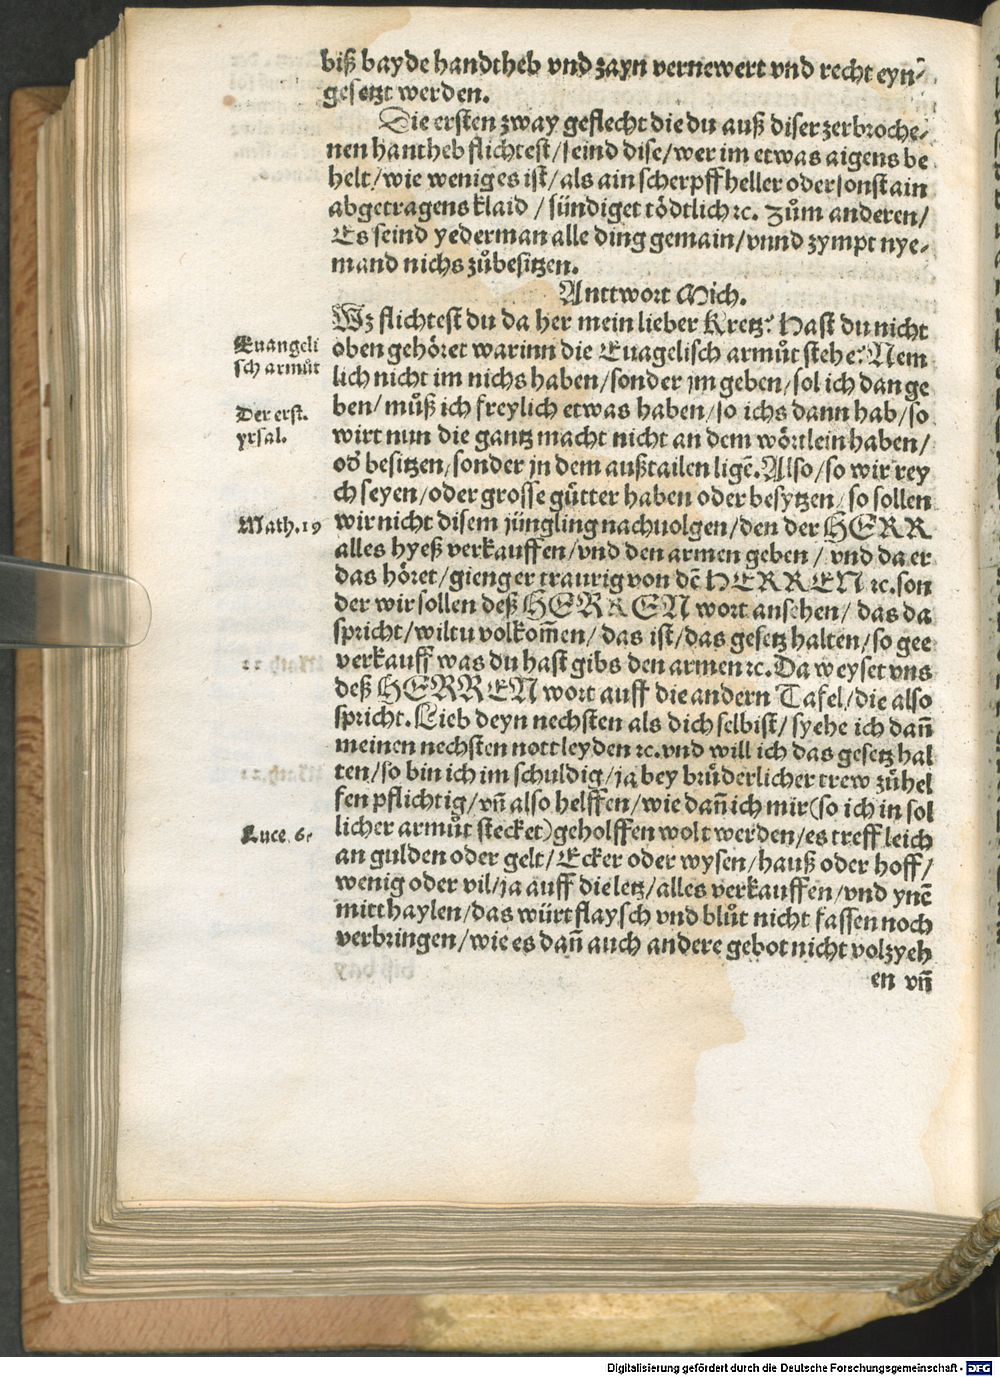 biß bayde handtheb vnd zayn vernewert vnd recht eyn-
gesetzt werden.
Die ersten zway geflecht die du auß diser zerbroche-
nen hantheb flichtest/seind dise/wer im etwas aigens be
helt/wie wenig es ist/als ain scherpff heller oder sonst ain
abgetragens klaid/sündiget tödtlich ꝛc. Zům anderen/
Es seind yederman alle ding gemain/vnnd zympt nye-
mand nichs zůbesitzen.
Anttwort Mich.
Wz flichtest du da her mein lieber Kretz? Hast du nicht
oben gehöret warinn die Euagelisch armůt stehe? Nem
lich nicht im nichs haben/sonder jm geben/sol ich dan ge
ben/můß ich freylich etwas haben/so ichs dann hab/so
wirt nun die gantz macht nicht an dem wörtlein haben/
od̕ besitzen/sonder jn dem außtailen ligē. Also/so wir rey
ch seyen/oder grosse gůtter haben oder besytzen/so sollen
wir nicht disem jüngling nachuolgen/den der HERR
alles hyeß verkauffen/vnd den armen geben/vnd da er
das höret/gieng er traurig von dē HERREN ꝛc. son
der wir sollen deß HERREN wort ansehen/das da
spricht/wiltu volkom̄en/das ist/das gesetz halten/so gee
verkauff was du hast gibs den armen ꝛc. Da weyset vns
deß HERREN wort auff die andern Tafel/die also
spricht. Lieb deyn nechsten als dich selbist/syehe ich dañ
meinen nechsten nott leyden ꝛc. vnd will ich das gesetz hal
ten/so bin ich im schuldig/ja bey brüderlicher trew zůhel
fen pflichtig/vñ also helffen/wie dañ ich mir (so ich in sol
licher armůt stecket) geholffen wolt werden/es treff leich
an gulden oder gelt/Ecker oder wysen/hauß oder hoff/
wenig oder vil/ja auff die letz/alles verkauffen/vnd ynē
mitthaylen/das würt flaysch vnd blůt nicht fassen noch
verbringen/wie es dañ auch andere gebot nicht volzyeh
en vñ
Euangeli
sch armůt
Der erst.
yrsal.
Math. 19
Luce. 6.
Digitalisierung gefördert durch die Deutsche Forschungsgemeinschaft - DFG